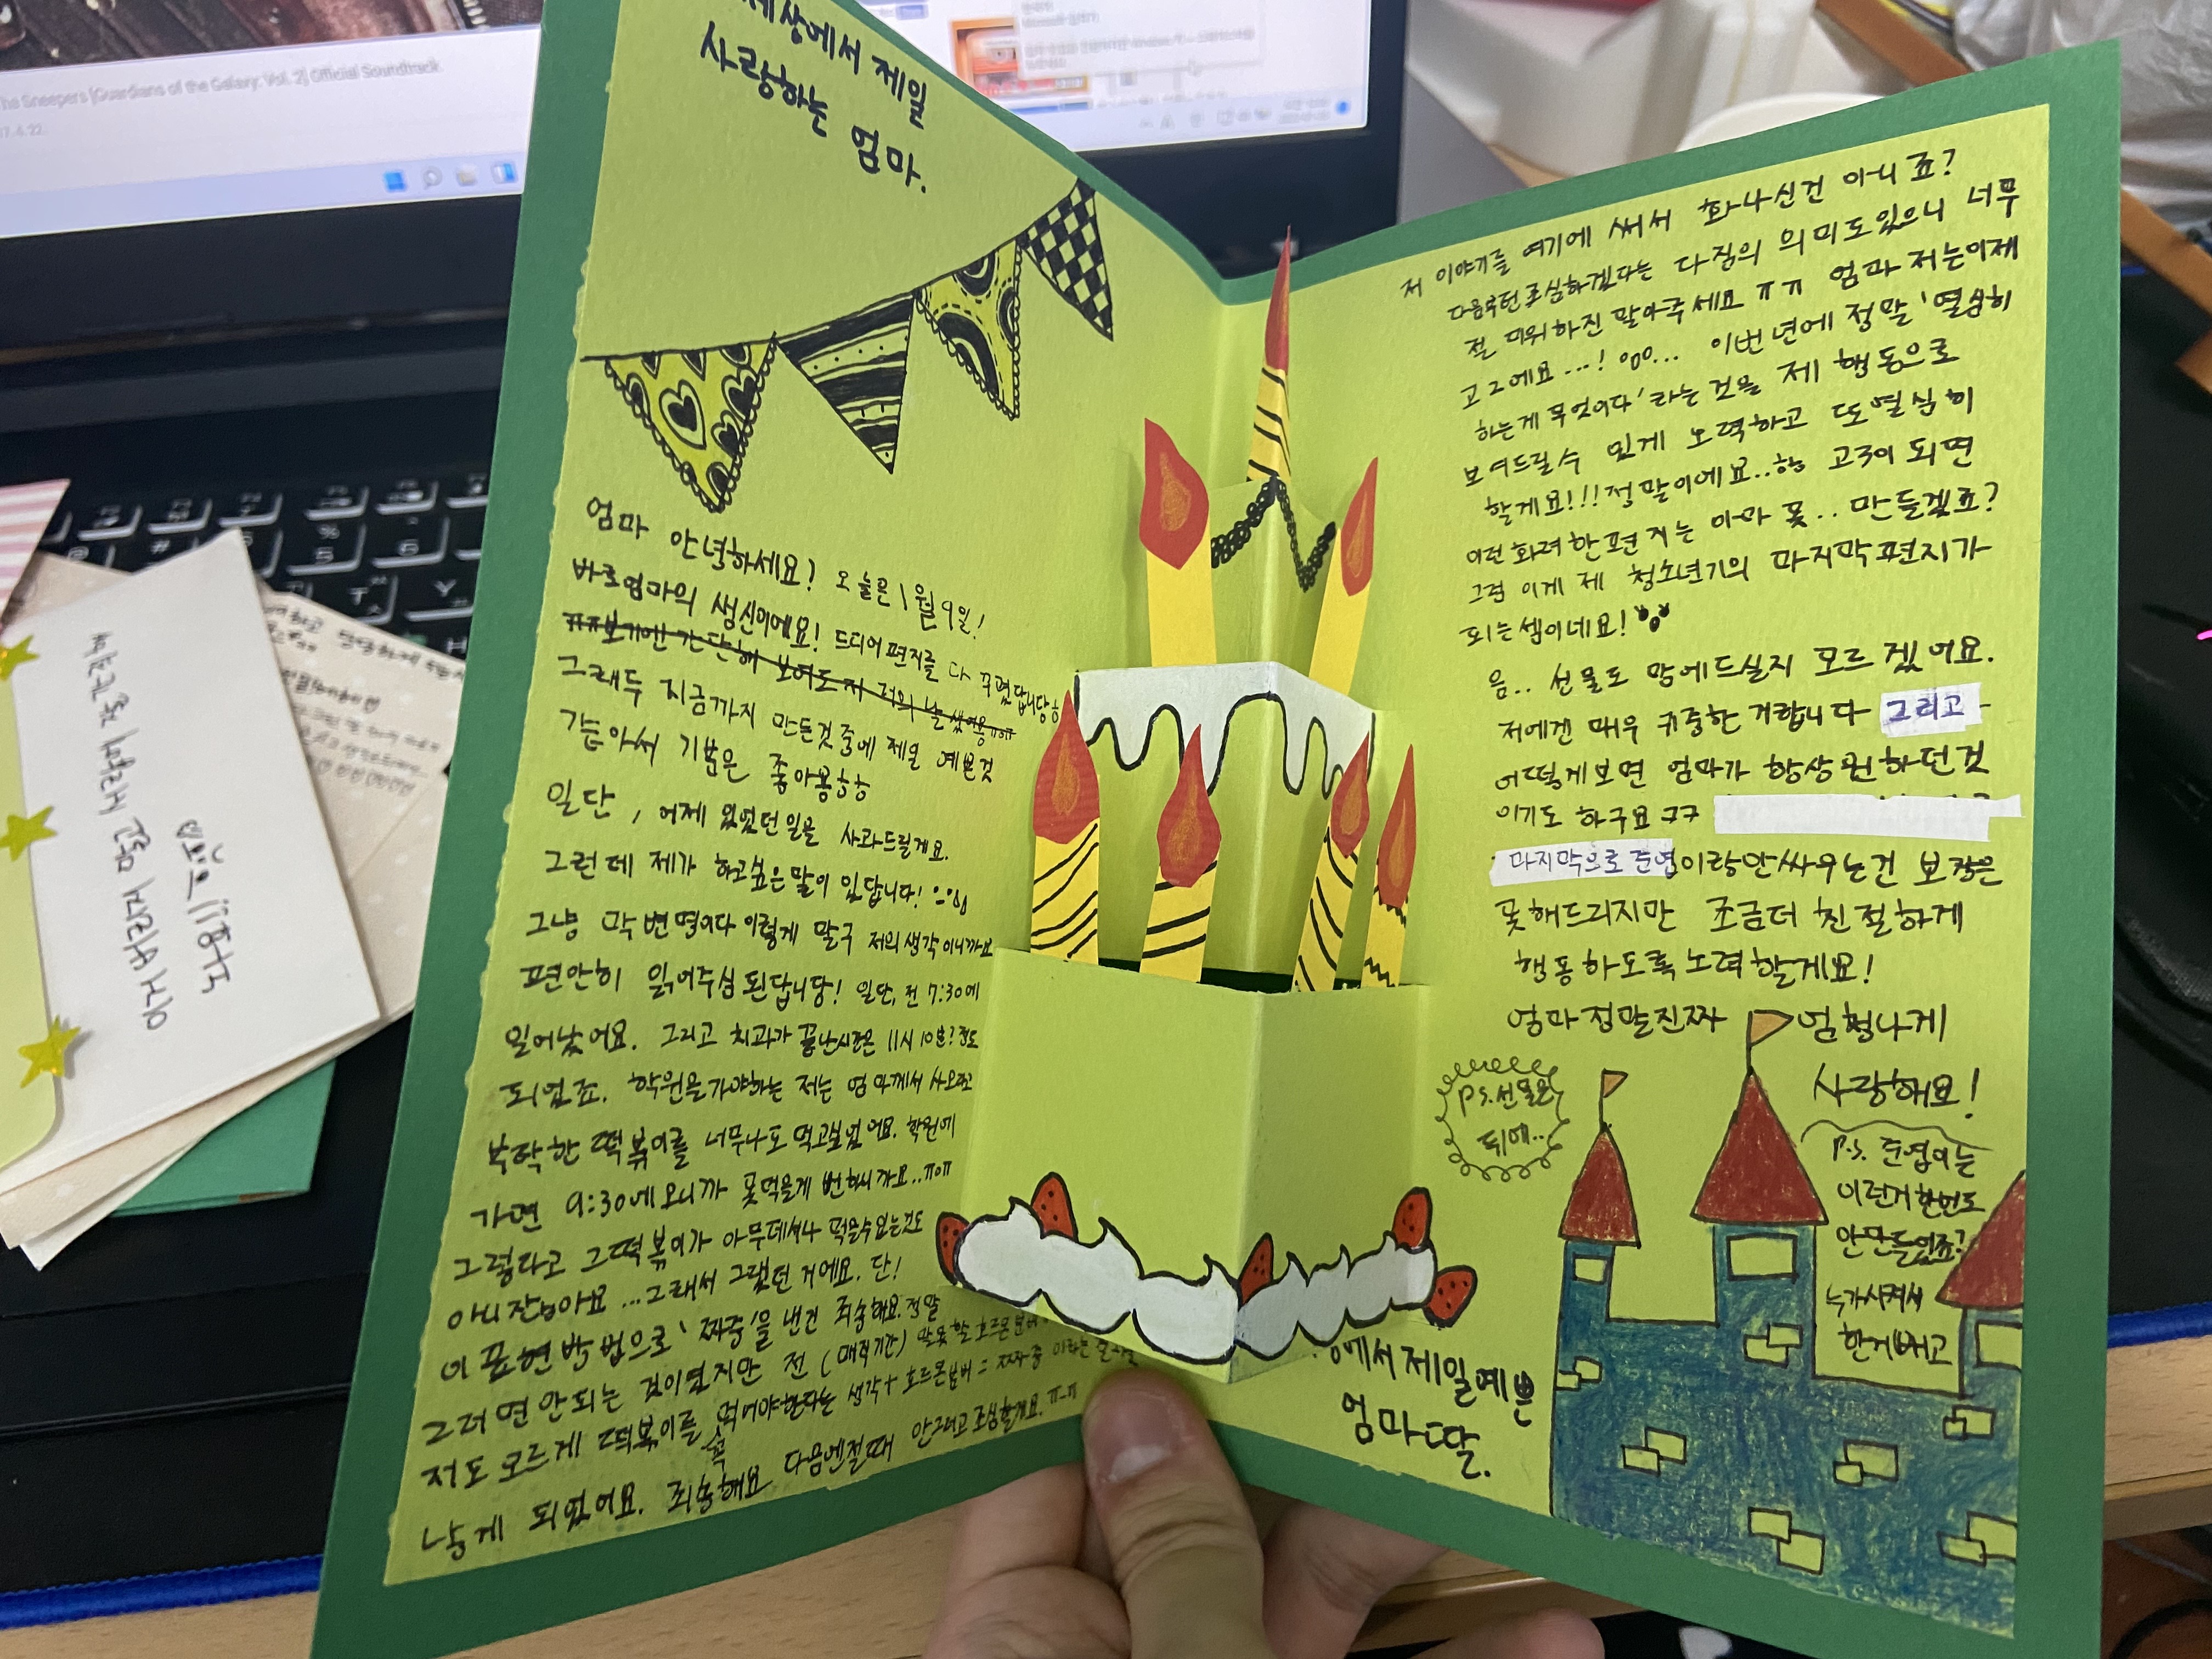 The Sneepers [Guardians of the Galaxy: Vol. 2] Official Soundtrack
세상에서 제일
사랑하는 엄마.
엄마 안녕하세요? 오늘은 1월 9일!
바로엄마의 생신이에요! 드디어 편지를 다 꾸몄답니당ㅎ
ㅠㅠ보기엔 간단해 보여도 저의 날 샜어용ㅠㅠ
그래두 지금까지 만든것중에 제일 예쁜것
같아서 기분은 좋아용ㅎㅎ
일단, 어제 있었던일을 사과드릴게요.
그런데 제가 하고싶은말이 있답니다!
그냥 막 변명이다 이렇게 말구 저의생각이니까요
편안히 읽어주심 된답니당! 일단, 전 7:30에
일어났어요. 그리고 치과가 끝난시간은 11시 10분? 정도
되었죠. 학원을가야하는 저는 엄마께서 사오라고
부탁한 떡볶이를 너무나도 먹고싶었어요. 학원에
가면 9:30에 오니까 못먹을게 뻔하니까요..ㅠㅠ
그렇다고 그떡볶이가 아무데서나 먹을수있는것도
아니잖아요...그래서 그랬던 거에요. 단!
이 표현방법으로 '짜증'을 낸건 죄송해요. 정말
그러면 안되는 것이였지만 전 (매직기간) 말못할 호르몬
저도 모르게 떡볶이를 꼭 먹어야한다는 생각+호르몬 = 짜증 이라는
낳게 되었어요. 죄송해요 다음번엔절때 안그러고조심할게요. ㅠ-ㅠ
저 이야기를 여기에 써서 화나신건 아니죠?
다음부턴조심하겠다는 다짐의 의미도있으니 너무
절 미워하진 말아주세요 ㅠㅠ 엄마 저는이제
고2에요...! 이번년에 정말 '열심히
하는게 무엇이다'라는 것을 제 행동으로
보여드릴수 있게 노력하고 또 열심히
할게요!!!정말이에요..핳 고3이 되면
이런 화려한편지는 아마 못.. 만들겠죠?
그럼 이게 제 청소년기의 마지막편지가
되는셈이네요!
음.. 선물도 맘에드실지 모르겠어요.
저에겐 매우 귀중한 거랍니다 그리고
어떻게보면 엄마가 항상 원하던것
이기도 하구요 ㅋㅋ
마지막으로 준엽이랑안싸우는건 보장은
못해드리지만 조금더 친절하게
행동하도록노력할게요!
엄마정말진짜 엄청나게
사랑해요!
P.S.선물은
뒤에..
P.S. 준엽이는
이런거한번도
안만들었죠?
누가시켜서
한거빼고
에서제일예쁜
엄마딸.